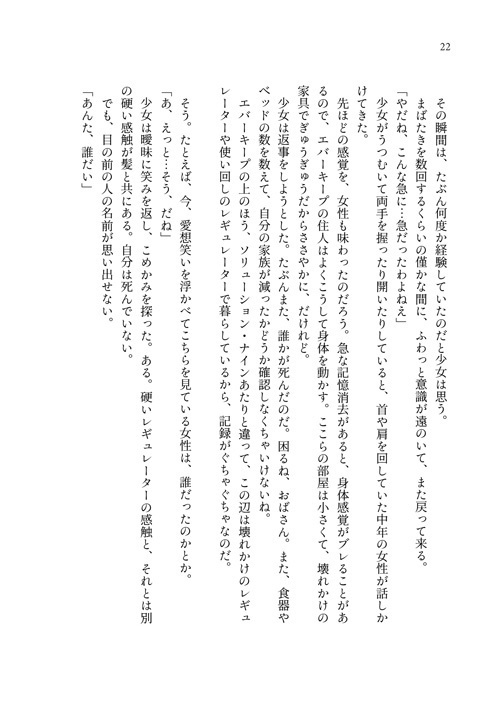 22
その瞬間は、たぶん何度か経験していたのだと少女は思う。
まばたきを数回するくらいの僅かな間に、ふわっと意識が遠のいて、また戻って来る。
「やだね、こんな急に…急だったわよねえ」
少女がうつむいて両手を握ったり開いたりしていると、首や肩を回していた中年の女性が話しか
けてきた。
先ほどの感覚を、女性も味わったのだろう。急な記憶消去があると、身体感覚がブレることがあ
るので、エバーキープの住人はよくこうして身体を動かす。ここらの部屋は小さくて、壊れかけの
家具でぎゅうぎゅうだからささやかに、だけれど。
少女は返事をしようとした。たぶんまた、誰かが死んだのだ。困るね、おばさん。また、食器や
ベッドの数を数えて、自分の家族が減ったかどうか確認しなくちゃいけないね。
エバーキープの上のほう、ソリューション・ナインあたりと違って、この辺は壊れかけのレギュ
レーターや使い回しのレギュレーターで暮らしているから、記録がぐちゃぐちゃなのだ。
そう。たとえば、今、愛想笑いを浮かべてこちらを見ている女性は、誰だったのかとか。
「あ、えっと…そう、だね」
少女は曖昧に笑みを返し、こめかみを探った。ある。硬いレギュレーターの感触と、それとは別
の硬い感触が髪と共にある。自分は死んでいない。
でも、目の前の人の名前が思い出せない。
「あんた、誰だい」